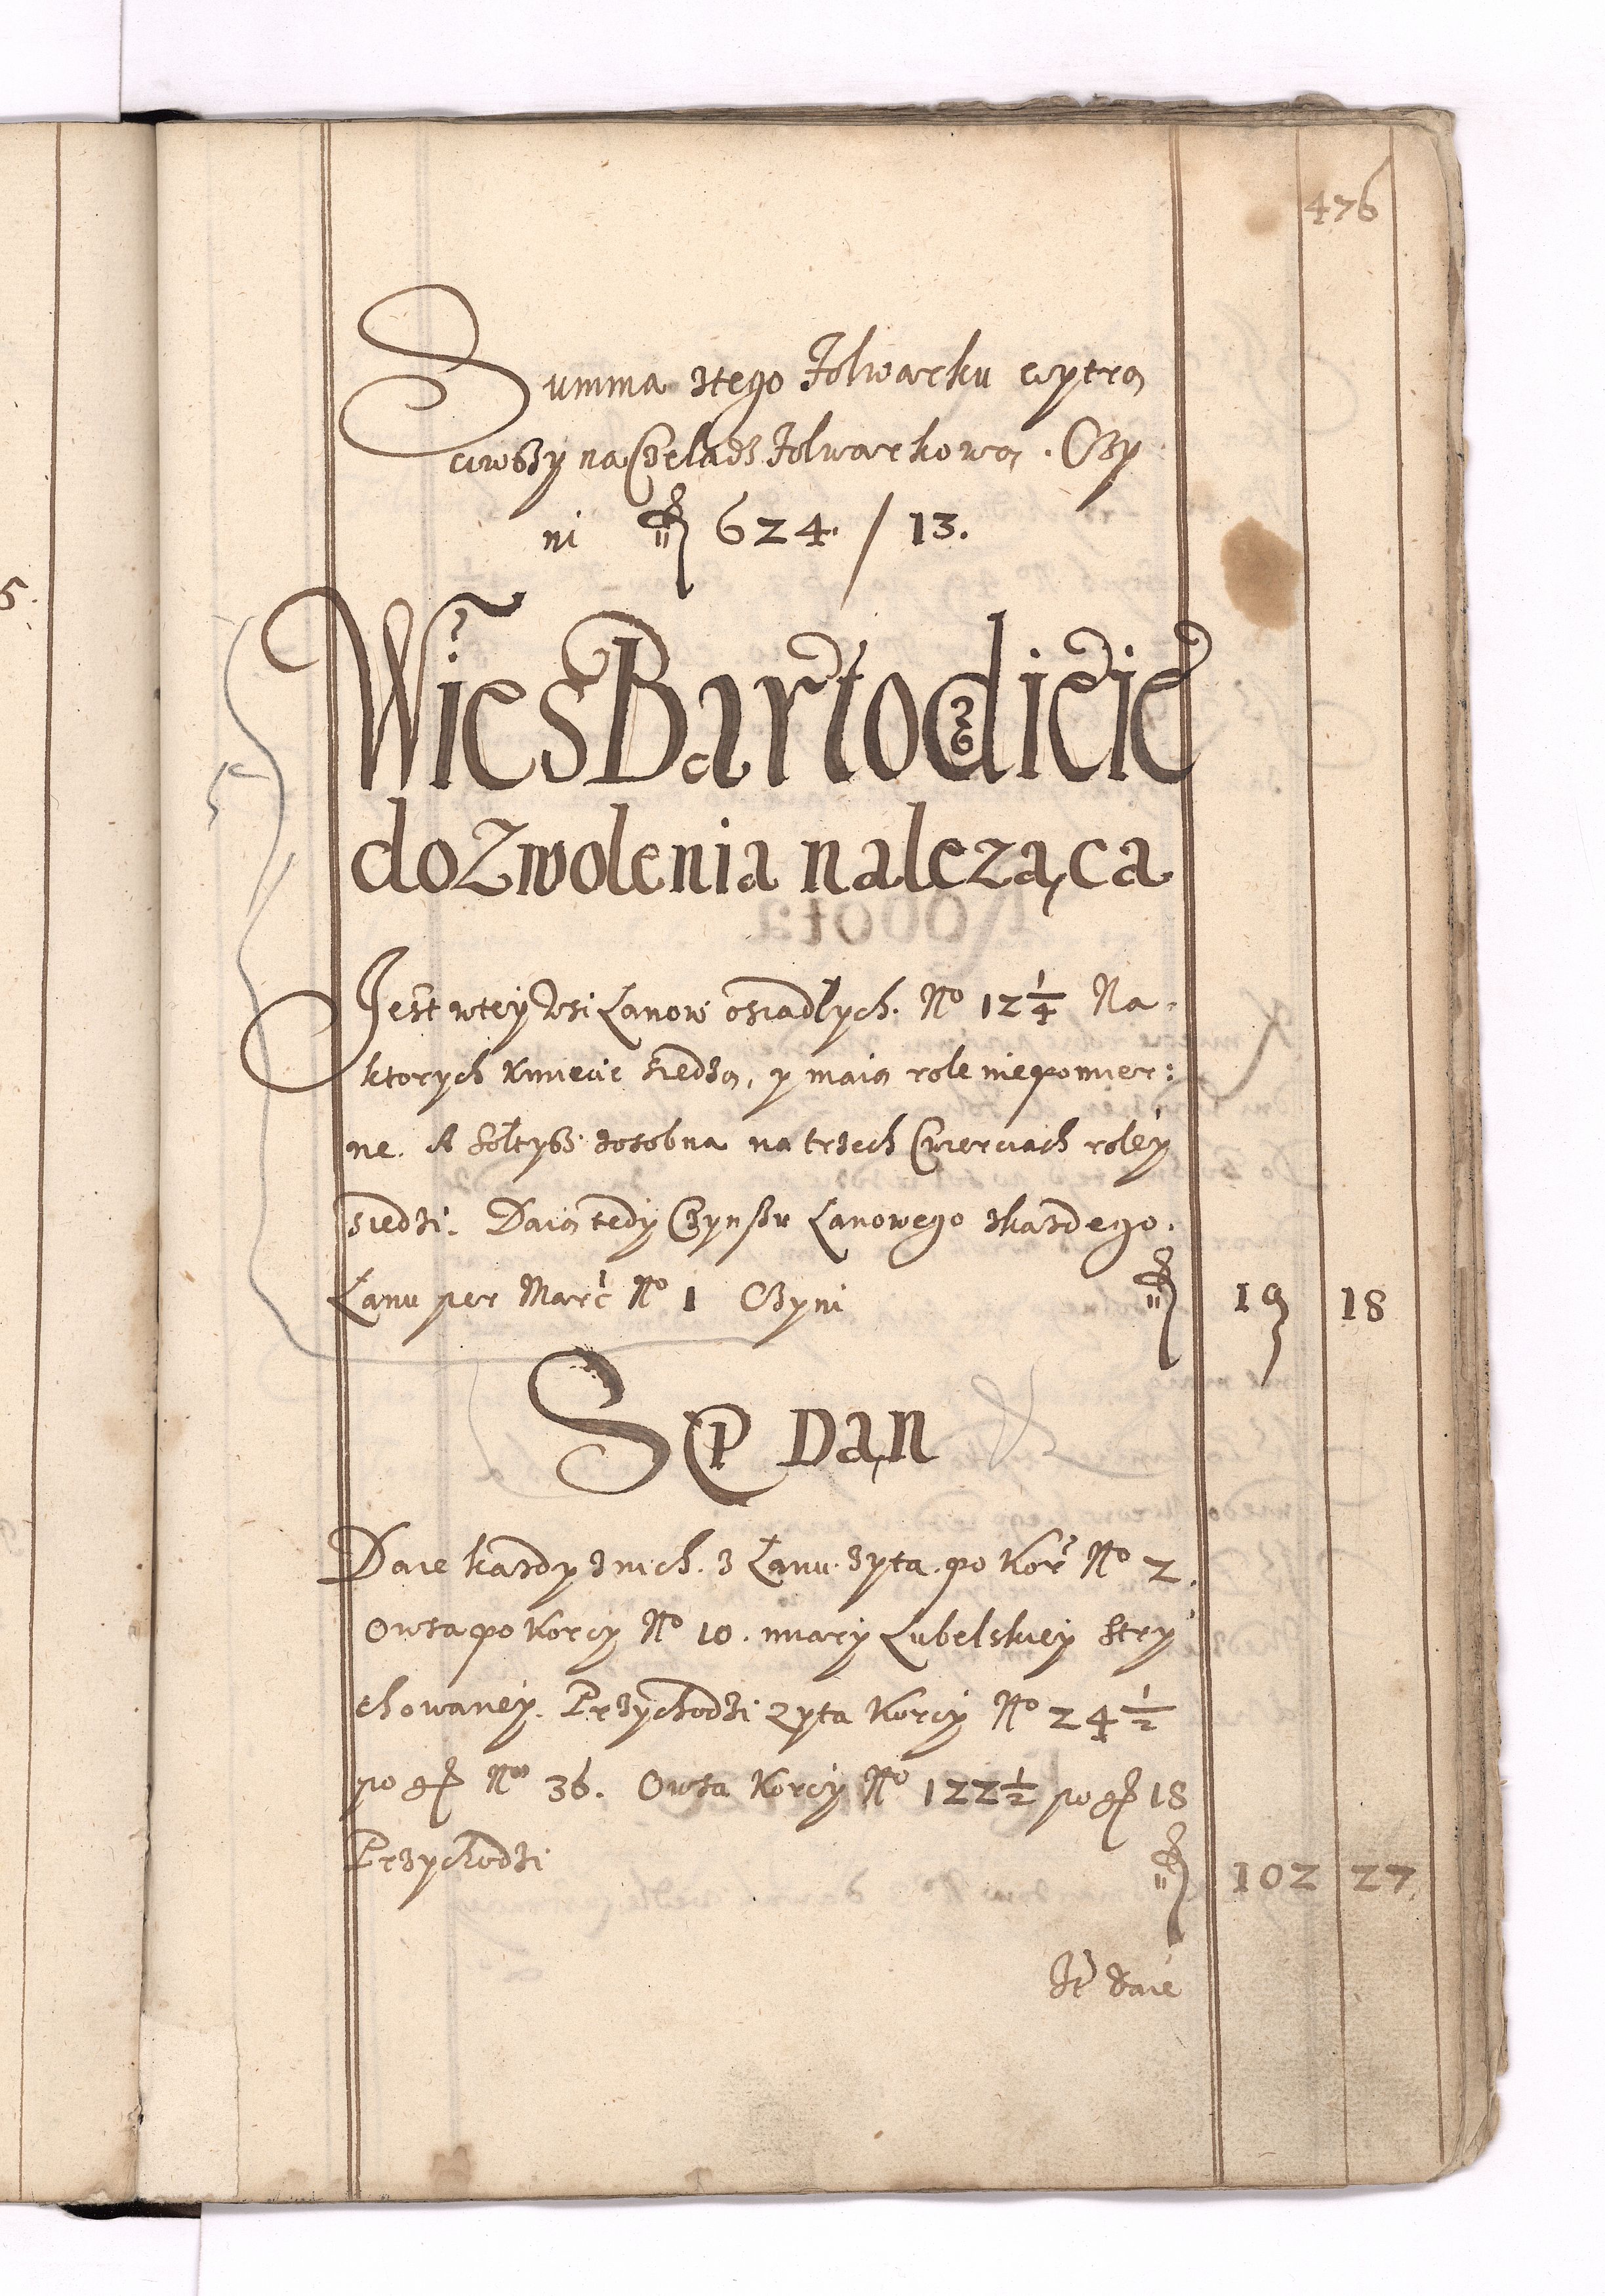 476
Summa ztego Folwarku wytrą
ciwszy na Czeladz Folwarkową. Czy
ni fl 624 / 13.
Wies Bartodzieie
do Zwolenia nalezaca
Jest wtey Wsi Łanow osiadłych. No 12 1/4 Na-
ktorych Kmiecie siedzą, y maią role niepomier:
ne. A Sołtysz zosobna na trzech Cwierciach roley
siedzi. Daią tedy Czynszu Łanowego zkazdego
Łanu per Marc No 1 Czyni fl 19 18
Sep Dan
Daie kazdy znich. z Łanu. zyta. po Kor No 2.
Owsa po Korcy No 10. miary Lubelskiey Stry
chowaney. Przychodzi zyta Korcy No 24 1/2
po gr No 36. Owsa Korcy No 122 1/2 po gr 18
Przychodzi fl 102 27
It daie